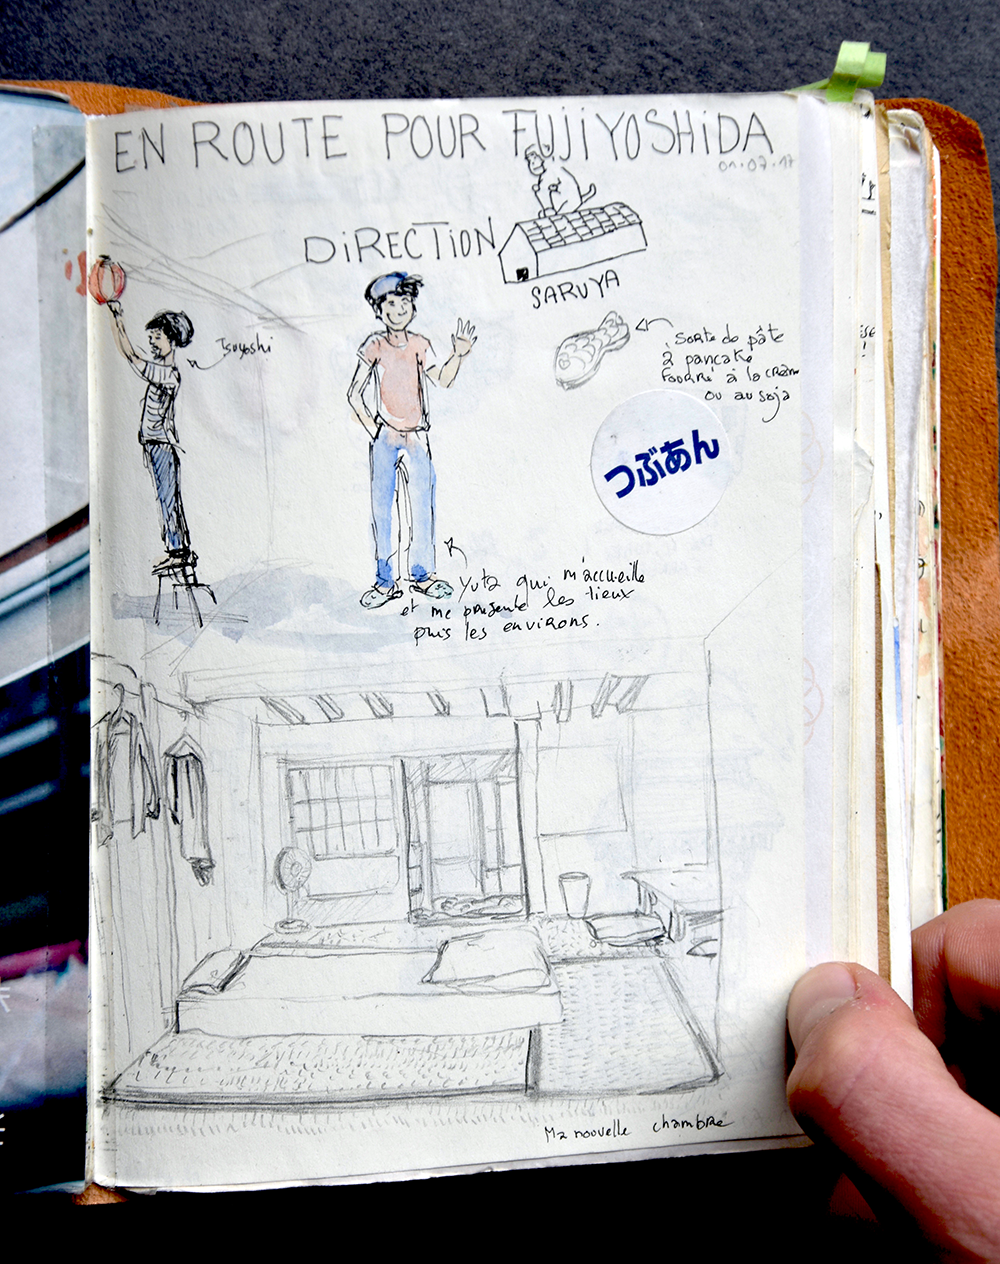 EN ROUTE POUR FUJIYOSHIDA
01.07.17
DIRECTION
SARUYA
Tsuyoshi
Sorte de pâte
à pancake
fourré à la crème
ou au soja
つぶあん
Yuta qui m'accueille
et me présente les lieux
puis les environs.
Ma nouvelle chambre